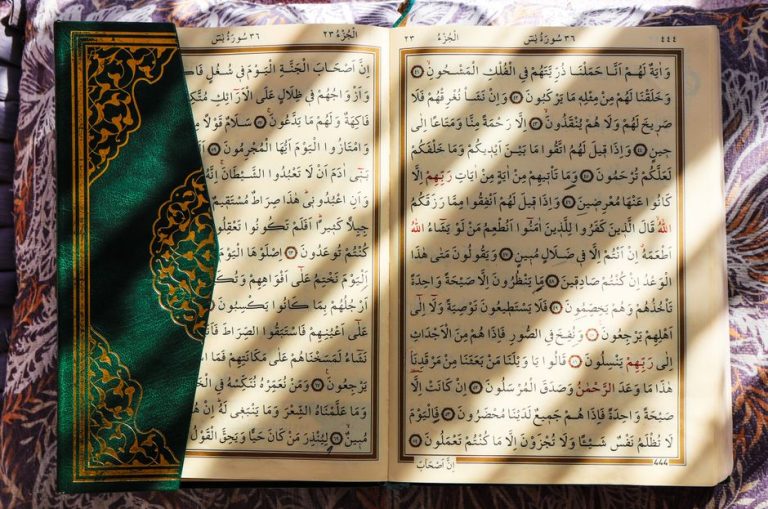 ٤٤٤ سُورَةُ يٰسٓ ٣٦ الْجُزْءُ ٢٣
وَاٰيَةٌ لَهُمْ اَنَّا حَمَلْنَا ذُرِّيَّتَهُمْ فِي الْفُلْكِ الْمَشْحُونِۙ
وَخَلَقْنَا لَهُمْ مِنْ مِثْلِه۪ مَا يَرْكَبُونَ وَاِنْ نَشَأْ نُغْرِقْهُمْ فَلَا
صَر۪يخَ لَهُمْ وَلَا هُمْ يُنْقَذُونَۙ اِلَّا رَحْمَةً مِنَّا وَمَتَاعًا اِلٰى
ح۪ينٍ وَاِذَا ق۪يلَ لَهُمُ اتَّقُوا مَا بَيْنَ اَيْد۪يكُمْ وَمَا خَلْفَكُمْ
لَعَلَّكُمْ تُرْحَمُونَ وَمَا تَأْت۪يهِمْ مِنْ اٰيَةٍ مِنْ اٰيَاتِ رَبِّهِمْ اِلَّا
كَانُوا عَنْهَا مُعْرِض۪ينَ وَاِذَا ق۪يلَ لَهُمْ اَنْفِقُوا مِمَّا رَزَقَكُمُ
اللّٰهُۙ قَالَ الَّذ۪ينَ كَفَرُوا لِلَّذ۪ينَ اٰمَنُٓوا اَنُطْعِمُ مَنْ لَوْ يَشَٓاءُ اللّٰهُ
اَطْعَمَهُۗ اِنْ اَنْتُمْ اِلَّا ف۪ي ضَلَالٍ مُب۪ينٍ وَيَقُولُونَ مَتٰى هٰذَا
الْوَعْدُ اِنْ كُنْتُمْ صَادِق۪ينَ مَا يَنْظُرُونَ اِلَّا صَيْحَةً وَاحِدَةً
تَأْخُذُهُمْ وَهُمْ يَخِصِّمُونَ فَلَا يَسْتَط۪يعُونَ تَوْصِيَةً وَلَٓا اِلٰٓى
اَهْلِهِمْ يَرْجِعُونَ وَنُفِخَ فِي الصُّورِ فَاِذَا هُمْ مِنَ الْاَجْدَاثِ
اِلٰى رَبِّهِمْ يَنْسِلُونَ قَالُوا يَا وَيْلَنَا مَنْ بَعَثَنَا مِنْ مَرْقَدِنَا
هٰذَا مَا وَعَدَ الرَّحْمٰنُ وَصَدَقَ الْمُرْسَلُونَ اِنْ كَانَتْ اِلَّا
صَيْحَةً وَاحِدَةً فَاِذَا هُمْ جَم۪يعٌ لَدَيْنَا مُحْضَرُونَ فَالْيَوْمَ
لَا تُظْلَمُ نَفْسٌ شَيْـًٔا وَلَا تُجْزَوْنَ اِلَّا مَا كُنْتُمْ تَعْمَلُونَ
اِنَّ اَصْحَابَ
444
سُورَةُ يٰسٓ ٣٦ الْجُزْءُ ٢٣
اِنَّ اَصْحَابَ الْجَنَّةِ الْيَوْمَ ف۪ي شُغُلٍ
وَاَزْوَاجُهُمْ ف۪ي ظِلَالٍ عَلَى الْاَرَٓائِكِ
فَاكِهَةٌ وَلَهُمْ مَا يَدَّعُونَۚ سَلَامٌ قَوْلًا
وَامْتَازُوا الْيَوْمَ اَيُّهَا الْمُجْرِمُونَ
بَن۪ٓي اٰدَمَ اَنْ لَا تَعْبُدُوا الشَّيْطَانَۚ اِنَّهُ
وَاَنِ اعْبُدُون۪يۜ هٰذَا صِرَاطٌ مُسْتَق۪يمٌ
جِبِلًّا كَث۪يرًاۜ اَفَلَمْ تَكُونُوا تَعْقِلُونَ
كُنْتُمْ تُوعَدُونَ اِصْلَوْهَا الْيَوْمَ
اَلْيَوْمَ نَخْتِمُ عَلٰٓى اَفْوَاهِهِمْ
اَرْجُلُهُمْ بِمَا كَانُوا يَكْسِبُونَ
عَلٰٓى اَعْيُنِهِمْ فَاسْتَبَقُوا الصِّرَاطَ
نَشَٓاءُ لَمَسَخْنَاهُمْ عَلٰى مَكَانَتِهِمْ فَمَا
يَرْجِعُونَ وَمَنْ نُعَمِّرْهُ نُنَكِّسْهُ فِي
وَمَا عَلَّمْنَاهُ الشِّعْرَ وَمَا يَنْبَغ۪ي لَهُۜ اِنْ
مُب۪ينٌۙ لِيُنْذِرَ مَنْ كَانَ حَيًّا وَيَحِقَّ الْقَوْلُ